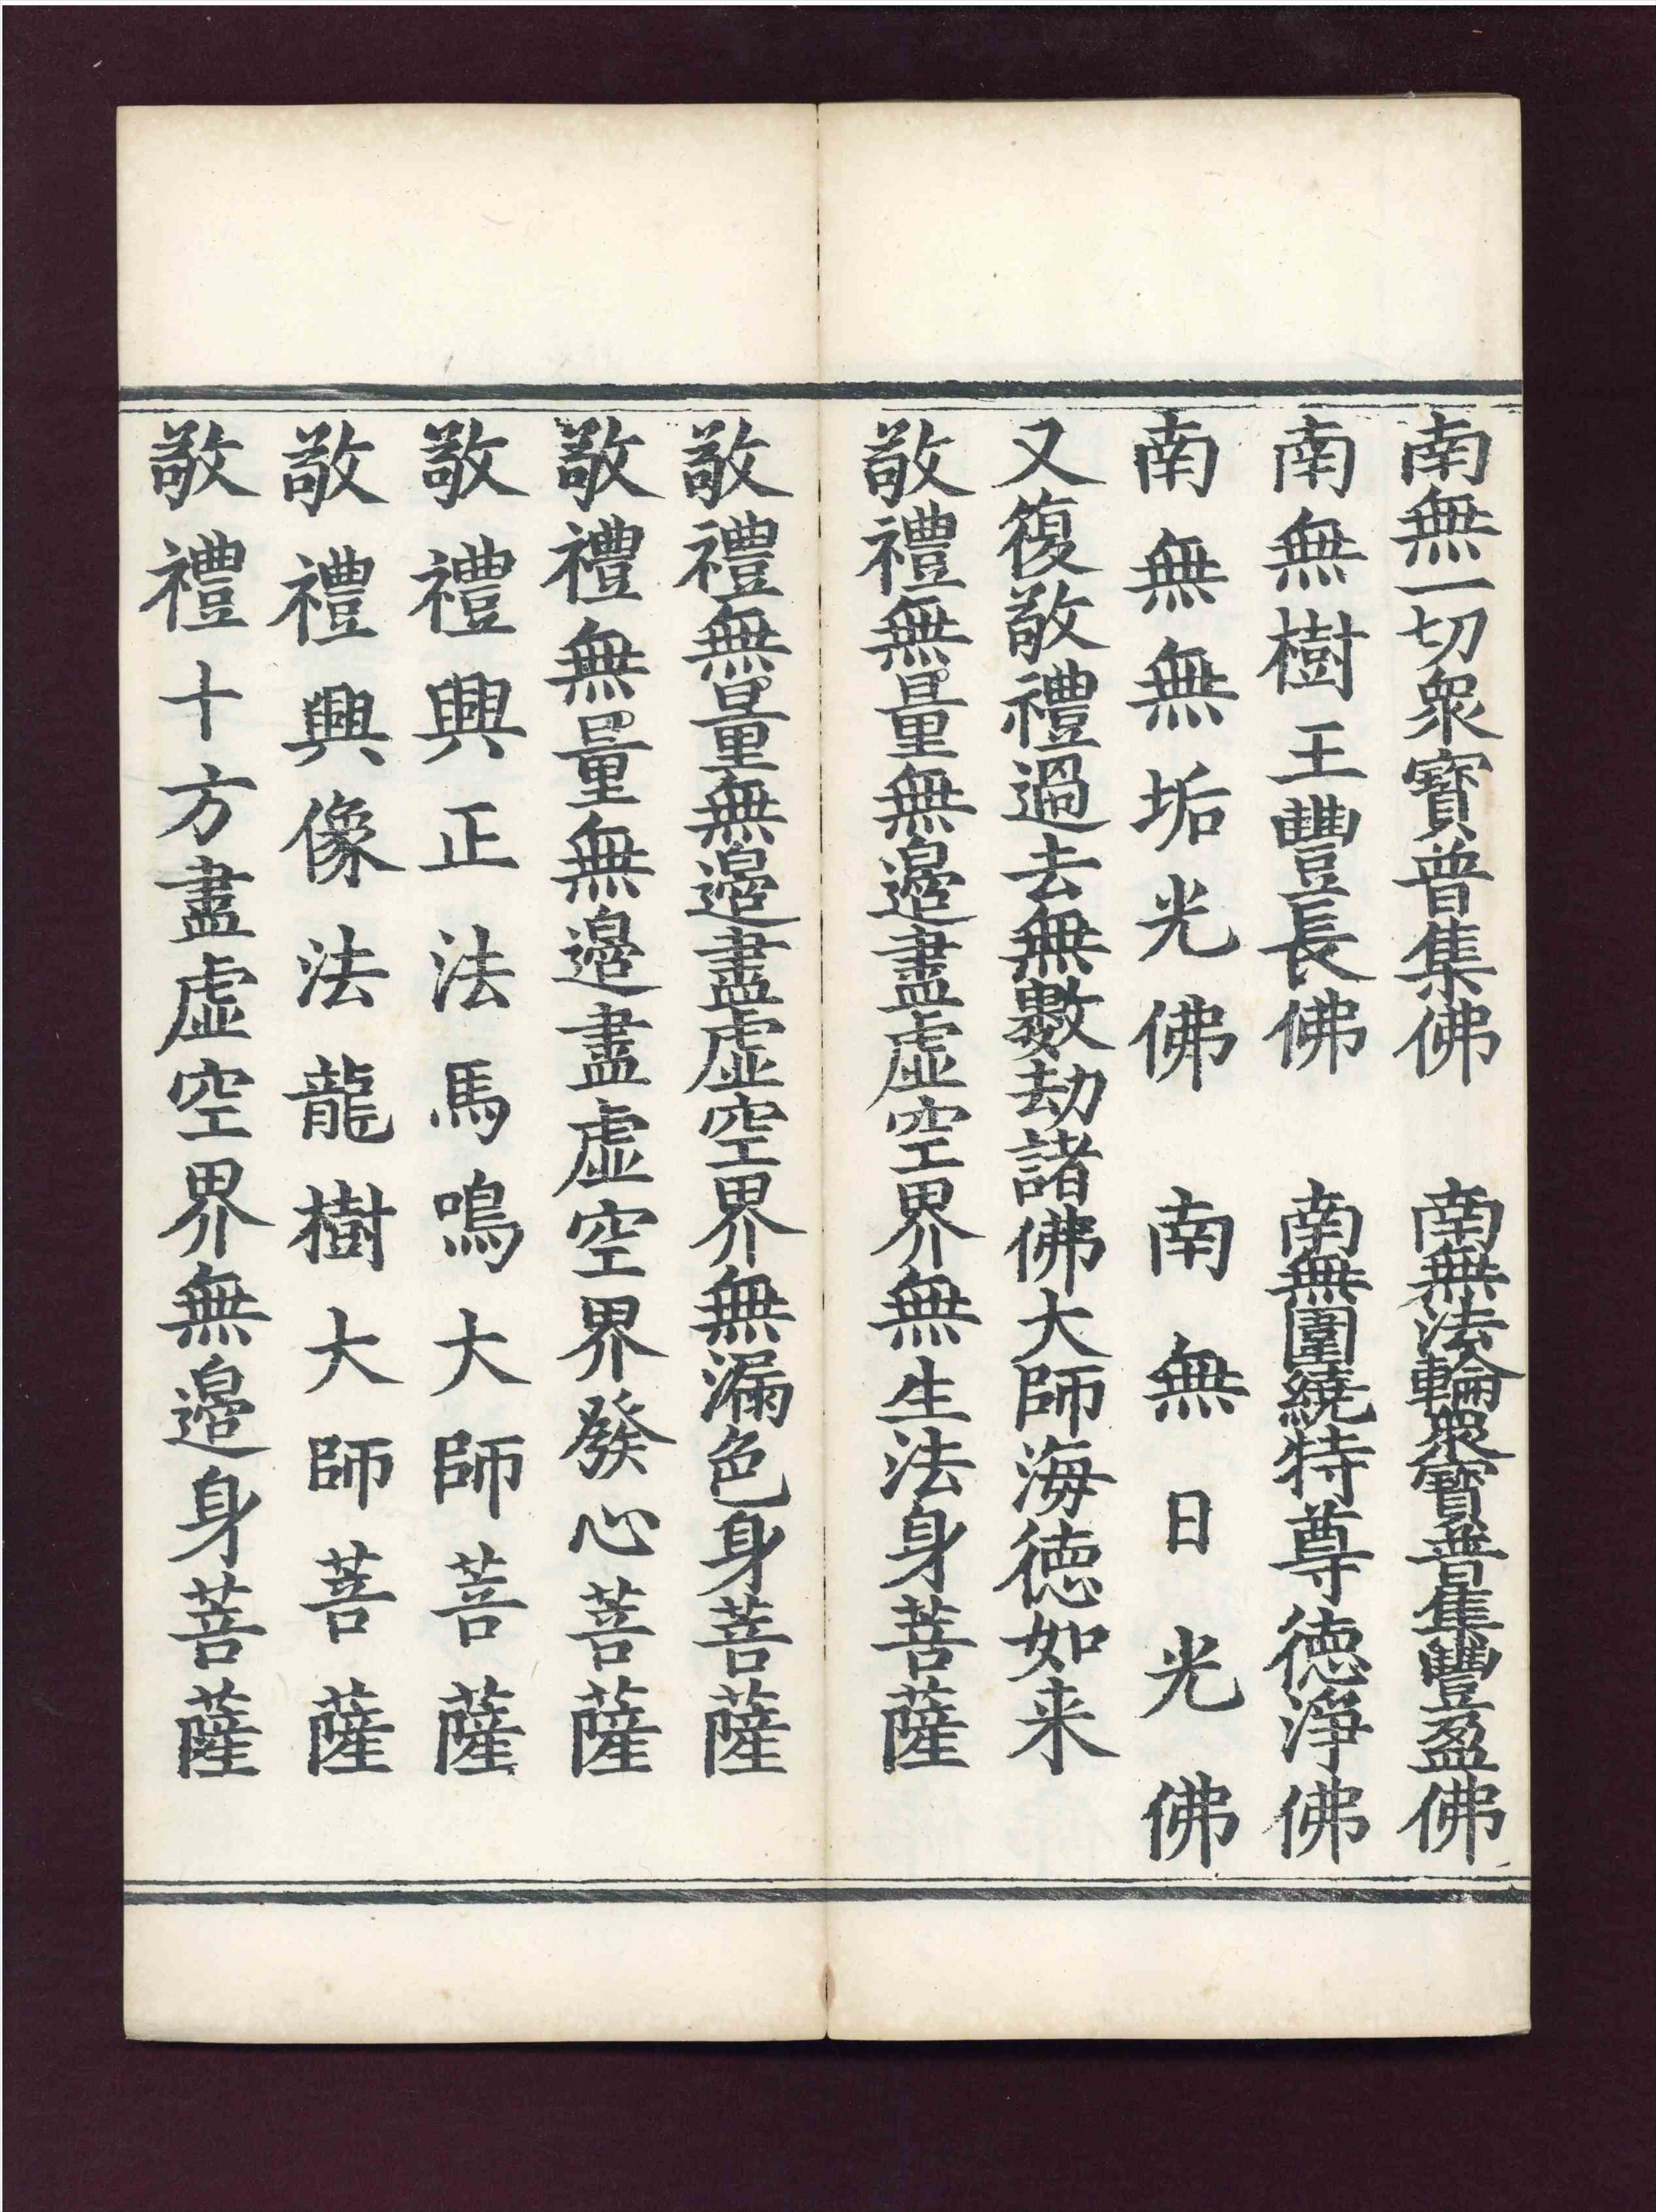 南無一切衆寶普集佛　南無法輪衆寶普集豐盈佛
南無樹王豐長佛　南無圍繞特尊德淨佛
南無無垢光佛　南無日光佛
又復敬禮過去無數劫諸佛大師海德如来
敬禮無量無邊盡虛空界無生法身菩薩
敬禮無量無邊盡虛空界無漏色身菩薩
敬禮無量無邊盡虛空界發心菩薩
敬禮興正法馬鳴大師菩薩
敬禮興像法龍樹大師菩薩
敬禮十方盡虛空界無邊身菩薩